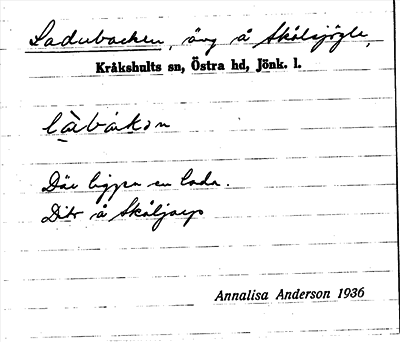 Ladubacken, äng å Skälsjögle,
Kråkshults sn, Östra hd, Jönk. l.
là̠bàkən
Där ligger en lada.
Dito å Skäljarp
Annalisa Anderson 1936